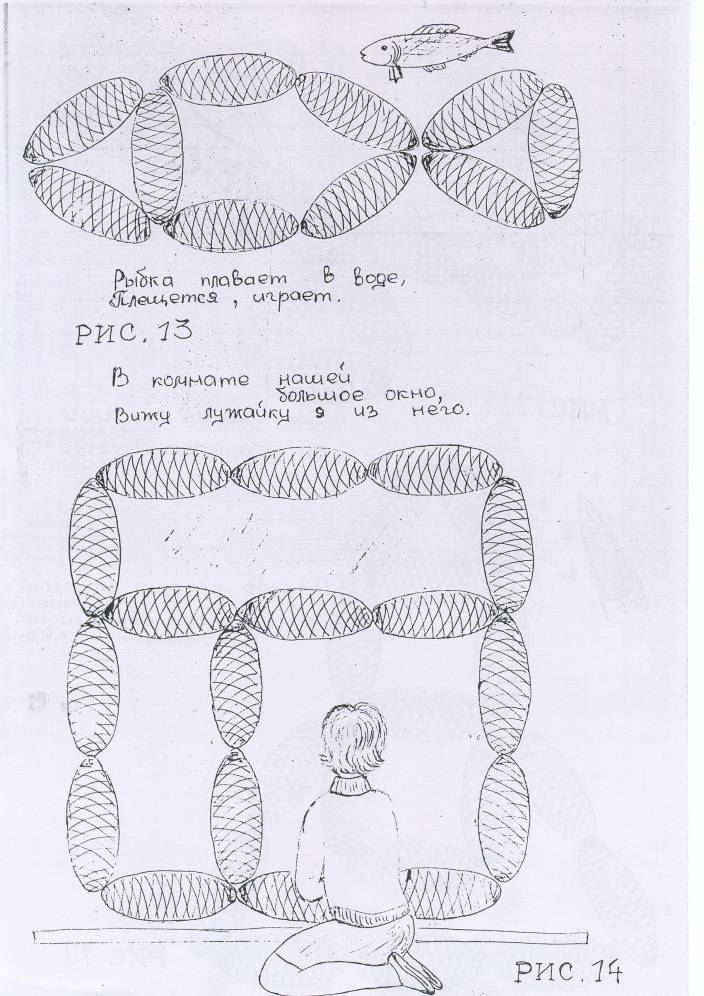 Рыбка плавает в воде,
Плещется, играет.
РИС. 13
В комнате нашей
большое окно,
Вижу лужайку я из него.
РИС. 14